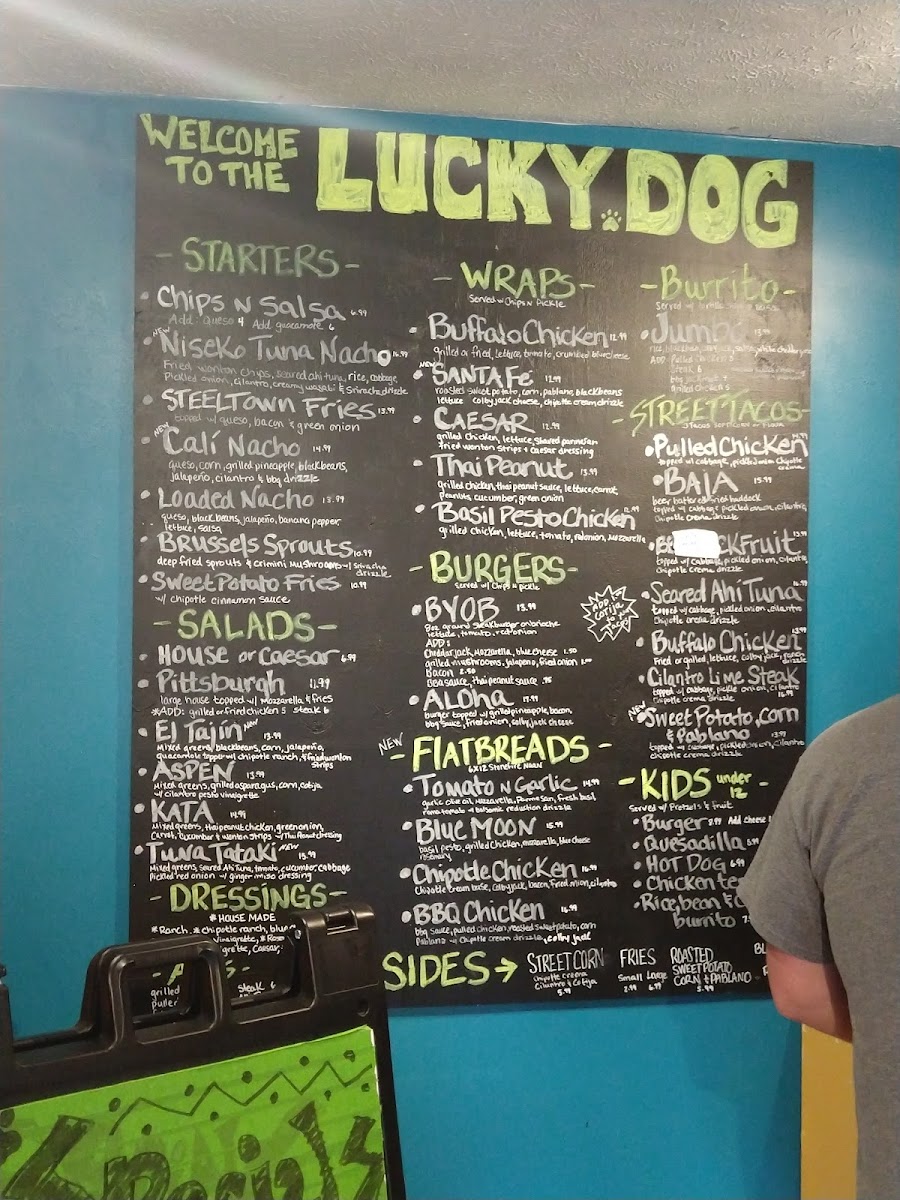 WELCOME
TO THE
LUCKY DOG
- STARTERS -
• Chips N Salsa 6.99
Add: Queso 4 Add guacamole 6
NEW
• Niseko Tuna Nacho 16.99
Fried wonton chips, seared ahi tuna, rice, cabbage,
Pickled onion, cilantro, creamy wasabi & sriracha drizzle
• STEELTOWN Fries 13.99
topped w/ queso, bacon & green onion
NEW
• Cali Nacho 14.99
queso, corn, grilled pineapple, blackbeans,
jalapeño, cilantro & bbq drizzle
• Loaded Nacho
queso, black beans, jalapeño, banana pepper,
lettuce, salsa
• Brussels Sprouts 10.99
deep fried sprouts & crimini mushrooms w/ Sriracha
drizzle
• Sweet Potato Fries 10.99
w/ chipotle cinnamon sauce
- SALADS -
• HOUSE or CAESAR 6.99
• Pittsburgh 11.99
large house topped w/ mozzarella & fries
*ADD: grilled or fried chicken 5 steak 6
• El Tajin NEW 13.99
Mixed greens, blackbeans, corn, jalapeño,
guacamole topper w/ chipotle ranch, & fried wonton
strips
• ASPEN 13.99
Mixed greens, grilled asparagus, corn, cotija
w/ cilantro pesto vinaigrette
• KATA 14.99
Mixed greens, thai peanut chicken, green onion,
Carrot, cucumber & wonton strips w/ Thai Peanut dressing
• Tuna Tataki NEW 15.99
Mixed greens, seared Ahi Tuna, tomato, cucumber, cabbage
pickled red onion w/ ginger miso dressing
- DRESSINGS -
* HOUSE MADE
*Ranch, * chipotle ranch,
Vinaigrette,
Caesar,
steak 6
grilled
- WRAPS -
Served w/ Chips N Pickle
• Buffalo Chicken 12.99
grilled or fried, lettuce, tomato, crumbled bluecheese
NEW
• SANTA Fe 12.99
roasted sweet potato, corn, pablano, blackbeans
lettuce colby jack cheese, chipotle cream drizzle
• CAESAR 12.99
grilled chicken, lettuce, shaved parmesan
fried wonton strips & caesar dressing
• Thai Peanut 13.99
grilled chicken, thai peanut sauce, lettuce, carrot,
peanuts, cucumber, green onion
• Basil Pesto Chicken
grilled chicken, lettuce, tomato, red onion, mozzarella
- BURGERS -
Served w/ Chips n pickle
• BYOB 13.99
8oz ground steakburger on brioche
lettuce, tomato, red onion
ADD:
Cheddar jack, Mozzarella, blue cheese 1.50
grilled mushrooms, jalapeno, fried onion 1.00
Bacon 2.50
BBQ sauce, thai peanut sauce .95
• ALOha 17.99
burger topped w/ grilled pineapple, bacon,
bbq sauce, fried onion, colby jack cheese
ADD
Cotija
to your
tacos!
NEW
- FLATBREADS -
6x12 Stonefire Naan
• Tomato N Garlic 14.99
garlic olive oil, Mozzarella, Parmesan, fresh basil
roma tomato w/ balsamic reduction drizzle
• Blue MOON 15.99
basil pesto, grilled chicken, mozzarella, blue cheese
rosemary
• Chipotle Chicken 16.99
Chipotle Cream base, colby jack, bacon, fried onion, cilantro
• BBQ Chicken 16.99
bbq sauce, pulled chicken, roasted sweet potato, corn
Pablano w/ Chipotle cream drizzle, colby jack
SIDES →
STREET CORN
chipotle crema
cilantro & Cotija
5.99
FRIES
Small Large
2.99 6.99
ROASTED
SWEET POTATO
CORN & PABLANO
5.99
- Burrito -
• Jumbo 13.99
ADD Pulled chicken 5
Steak 6
grilled chicken 5
- STREET TACOS -
• Pulled Chicken
topped w/ cabbage, pickled onion chipotle
crema
• BAJA 15.99
beer battered fried haddock
topped w/ cabbage pickled onion, cilantro,
Chipotle crema drizzle
CKFRUIT
topped w/ cabbage, pickled onion, cilantro
chipotle crema drizzle
• Seared Ahi Tuna
topped w/ cabbage, pickled onion, cilantro
Chipotle crema drizzle
• Buffalo Chicken
Fried or grilled, lettuce, colby jack, ranch
drizzle
• Cilantro Lime Steak
topped w/ cabbage, pickle onion, cilantro
Chipotle crema drizzle
NEW
• Sweet Potato, Corn
& Pablano 13.99
topped w/ cabbage, pickled onion, cilantro
chipotle crema drizzle
- KIDS under
12 -
Served w/ Pretzels & fruit
• Burger 8.99 Add cheese
• Quesadilla
• HOT DOG 6.99
• Chicken te
• Rice, bean &
burrito
Specials